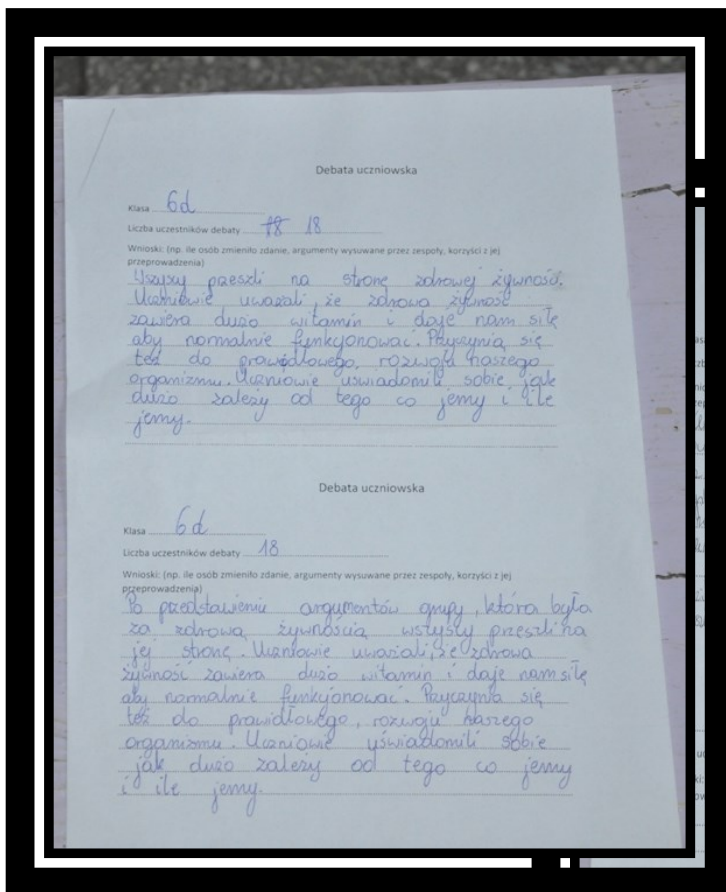 Debata uczniowska
Klasa 6d
Liczba uczestników debaty 18 18
Wnioski: (np. ile osób zmieniło zdanie, argumenty wysuwane przez zespoły, korzyści z jej
przeprowadzenia)
Wszyscy przeszli na stronę zdrowej żywność.
Uczniowie uważali, że zdrowa żywność
zawiera dużo witamin i daje nam siłę
aby normalnie funkcjonować. Przyczynia się
też do prawidłowego, rozwoju naszego
organizmu. Uczniowie uświadomili sobie jak
dużo zależy od tego co jemy i ile
jemy.
Debata uczniowska
Klasa 6d
Liczba uczestników debaty 18
Wnioski: (np. ile osób zmieniło zdanie, argumenty wysuwane przez zespoły, korzyści z jej
przeprowadzenia)
Po przedstawieniu argumentów grupy, która była
za zdrową żywnością wszyscy przeszli na
jej stronę. Uczniowie uważali, że zdrowa
żywność zawiera dużo witamin i daje nam siłę
aby normalnie funkcjonować. Przyczynia się
też do prawidłowego, rozwoju naszego
organizmu. Uczniowie uświadomili sobie
jak dużo zależy od tego co jemy
i ile jemy.